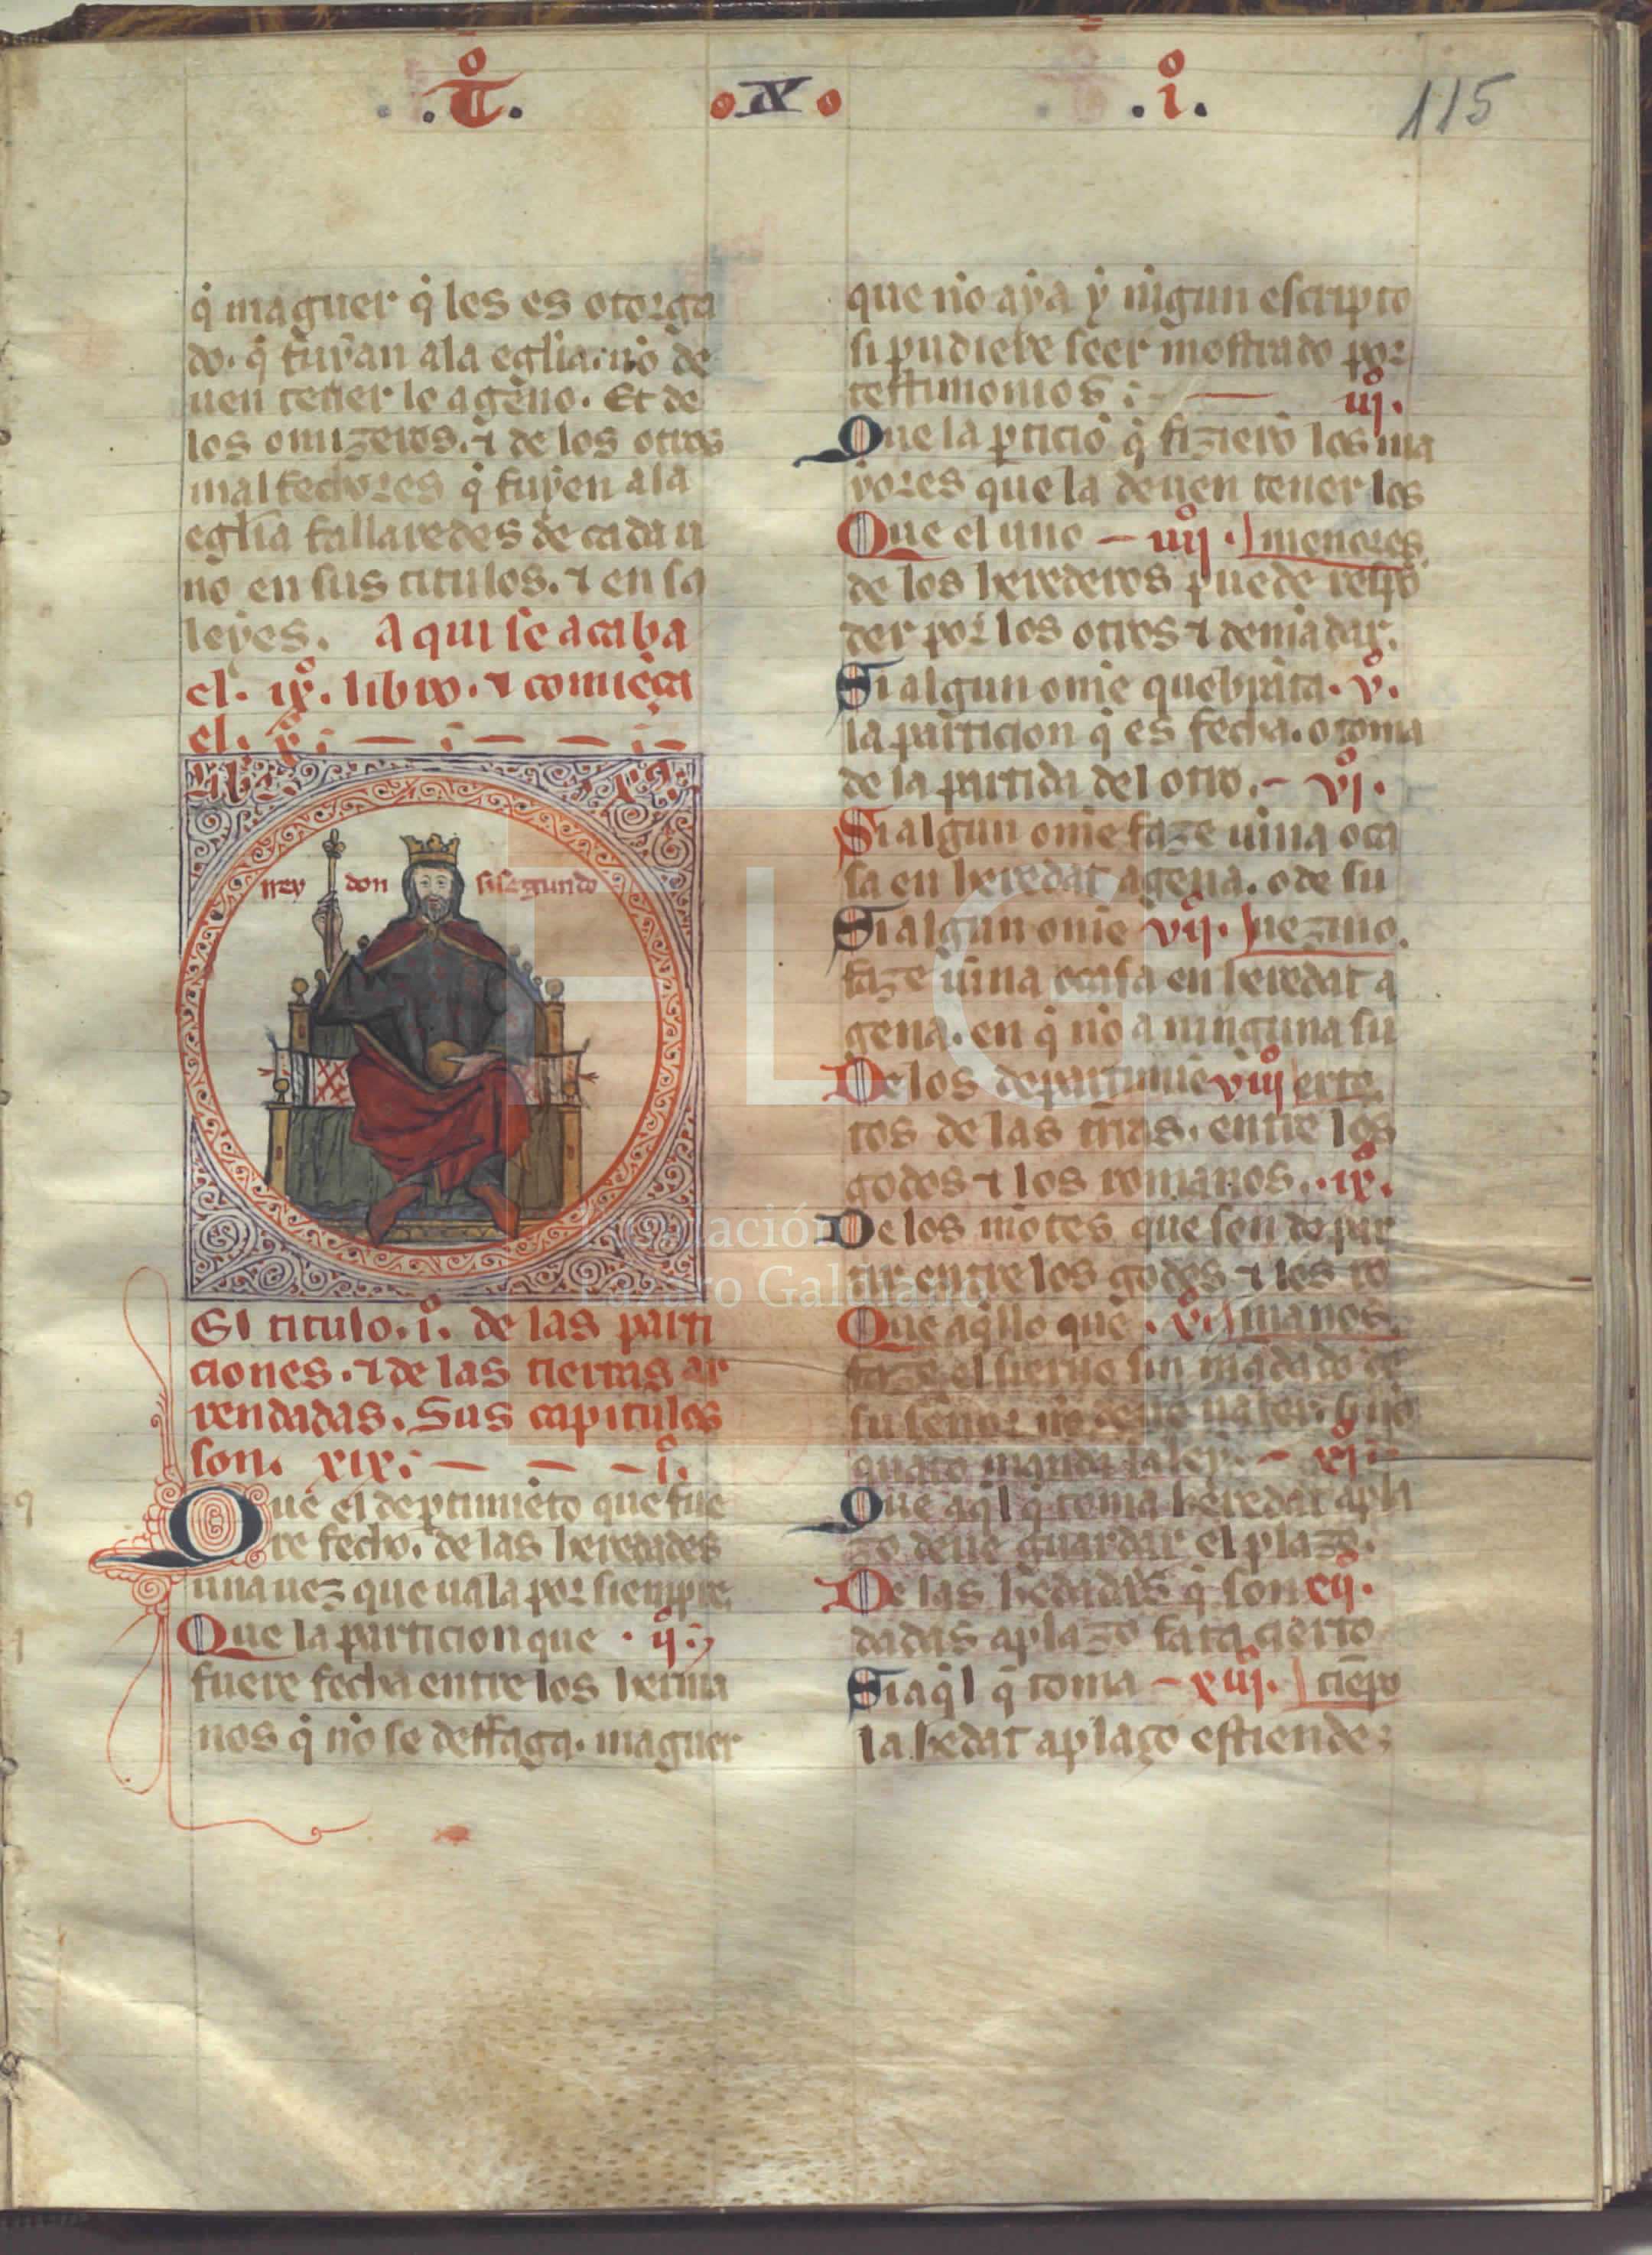 .t̊. .x. .i̊. 115
q̇ maguer q̇ les es otorga
do. q̇ fuyan ala egl̃ia. nȯ de
uen tener lo ageno. Et de
los omizeros. ⁊ de los otros
malfechores q̇ fuyen ala
egl̃ia fallaredes de cada u
no en sus titulos. ⁊ en sꝯ
leyes. Aqui se acaba
el. ix̊. libro. ⁊ comiẽça
el. x̊.
rey don sisegundo
El titulo. i̊. de las parti
ciones. ⁊ de las tierras ar
rendadas. Sus capitulos
son. xix. i̊.
Que el deꝑtimiẽto que fue
re fecho. de las heredades
una uez que uala por siempre.
Que la particion que . ii̊.
fuere fecha entre los herma
nos q̇ nȯ se desfaga. maguer
que nȯ aya y nĩgun escripto
si pudiere seer mostrado por
testimonios : iii̊.
Que la ꝑticiõ q̇ fizierõ los ma
yores que la deuen tener los
Que el uno iiii̊. menores
de los herederos puede respõ
der por los otros ⁊ demãdar.
Si algun ome quebrãta. v̊.
la particion q̇ es fecha. o toma
de la partida del otro. vi̊.
Si algun ome faze uina o ca
sa en heredat agena. o de su
Si algun ome vii̊. uezino.
faze uina o casa en heredat a
gena. en q̇ nȯ a ninguna su
De los departimiẽ viii̊ erte
tos de las trr̃as. entre los
godos ⁊ los romanos. . ix̊.
De los mõtes que son de par
tir entre los godos ⁊ los ro
Que aq̇llo que . x̊. manos.
faze el sieruo sin mãdado de
su señor nȯ deue ualer. si nȯ
quãto manda la ley. xi̊.
Que aq̇l q̇ toma heredat a pla
zo deue guardar el plazo.
De las hedades q̇ son xii̊.
dadas a plazo fata cierto
Si aq̇l q̇ toma xiii̊. tiẽpo
la hedat a plaço estiende
FLG
Fundación
Lázaro Galdiano